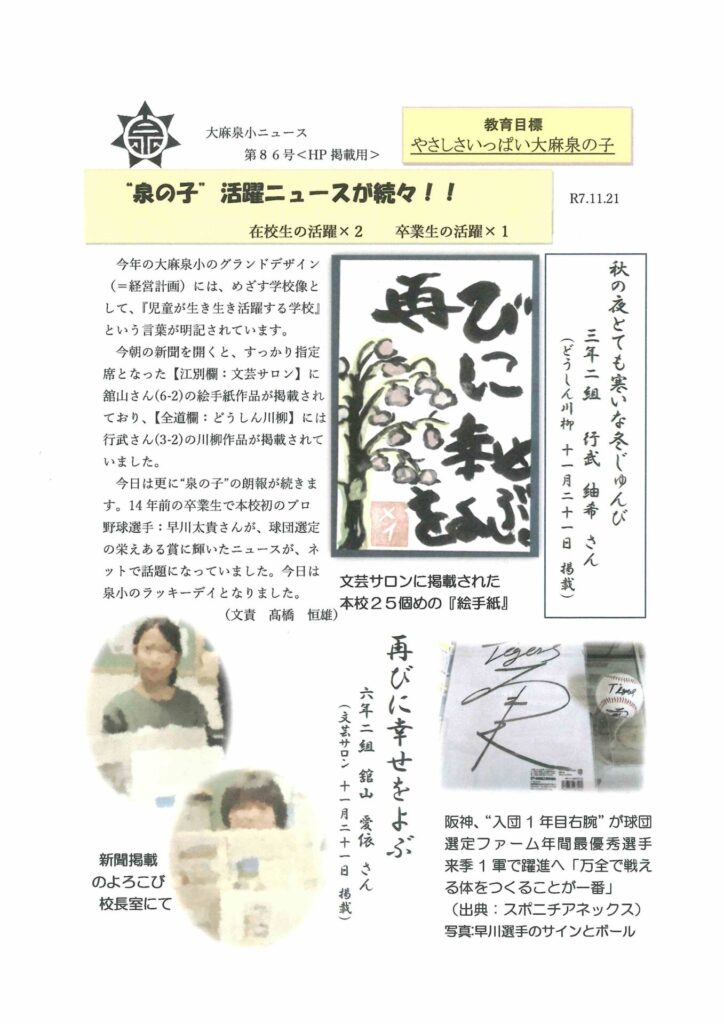 大麻泉小ニュース
第８６号＜HP 掲載用＞
教育目標
やさしさいっぱい大麻泉の子
“泉の子”活躍ニュースが続々！！
R7.11.21
在校生の活躍×２　　卒業生の活躍×１
今年の大麻泉小のグランドデザイン
（＝経営計画）には、めざす学校像と
して、『児童が生き生き活躍する学校』
という言葉が明記されています。
今朝の新聞を開くと、すっかり指定
席となった【江別欄：文芸サロン】に
舘山さん(6-2)の絵手紙作品が掲載され
ており、【全道欄：どうしん川柳】には
行武さん(3-2)の川柳作品が掲載されて
いました。
今日は更に“泉の子”の朗報が続きま
す。14 年前の卒業生で本校初のプロ
野球選手：早川太貴さんが、球団選定
の栄えある賞に輝いたニュースが、ネ
ットで話題になっていました。今日は
泉小のラッキーデイとなりました。
（文責　髙橋　恒雄）
再びに
幸せ
をよぶ。
メイ
文芸サロンに掲載された
本校２５個めの『絵手紙』
秋の夜とても寒いな冬じゅんび
三年二組　行武　紬希　さん
（どうしん川柳　十一月二十一日　掲載）
再びに幸せをよぶ
六年二組　舘山　愛依　さん
（文芸サロン　十一月二十一日　掲載）
新聞掲載
のよろこび
校長室にて
Tigers
阪神、“入団 1 年目右腕”が球団
選定ファーム年間最優秀選手
来季 1 軍で躍進へ「万全で戦え
る体をつくることが一番」
（出典：スポニチアネックス）
写真:早川選手のサインとボール